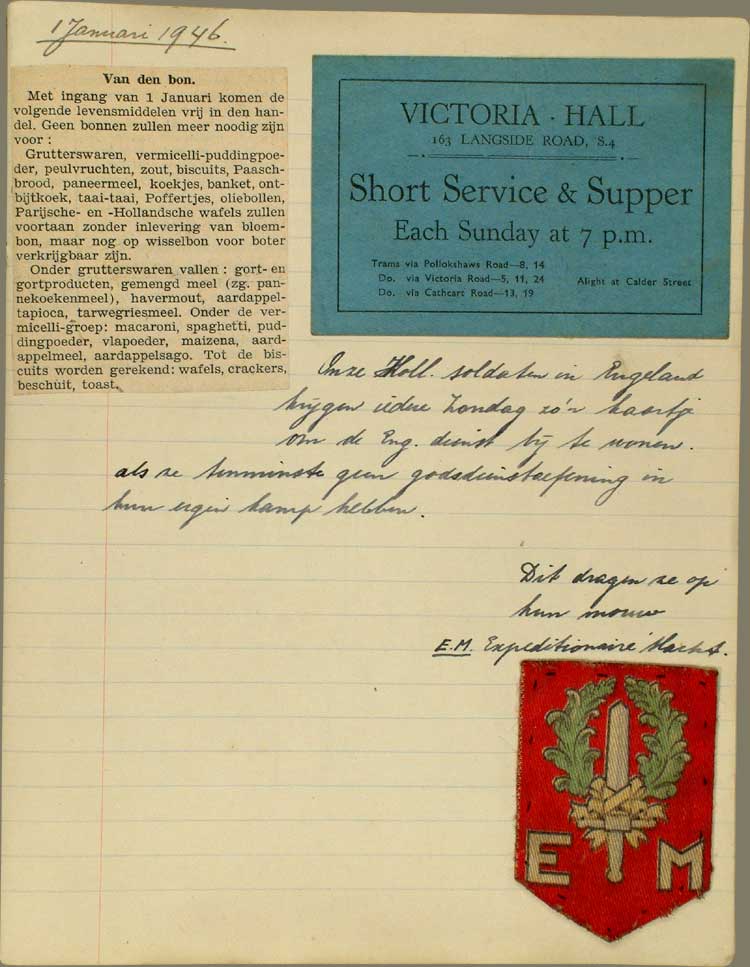 1 Januari 1946.
Van den bon.
Met ingang van 1 Januari komen de
volgende levensmiddelen vrij in den han-
del. Geen bonnen zullen meer noodig zijn
voor :
Grutterswaren, vermicelli-puddingpoe-
der, peulvruchten, zout, biscuits, Paasch-
brood, paneermeel, koekjes, banket, ont-
bijtkoek, taai-taai, Poffertjes, oliebollen,
Parijsche- en -Hollandsche wafels zullen
voortaan zonder inlevering van bloem-
bon, maar nog op wisselbon voor boter
verkrijgbaar zijn.
Onder grutterswaren vallen : gort- en
gortproducten, gemengd meel (zg. pan-
nekoekenmeel), havermout, aardappel-
tapioca, tarwegriesmeel. Onder de ver-
micelli-groep: macaroni, spaghetti, pud-
dingpoeder, vlapoeder, maizena, aard-
appelmeel, aardappelsago. Tot de bis-
cuits worden gerekend: wafels, crackers,
beschuit, toast.
VICTORIA · HALL
163 LANGSIDE ROAD, S.4
Short Service & Supper
Each Sunday at 7 p.m.
Trams via Pollokshaws Road—8, 14
Do. via Victoria Road—5, 11, 24
Do. via Cathcart Road—13, 19
Alight at Calder Street
Onze Holl. soldaten in Engeland
krijgen iedere Zondag zo'n kaartje
om de Eng. dienst bij te wonen.
als ze tenminste geen godsdienstoefening in
hun eigen kamp hebben.
Dit dragen ze op
hun mouw
E.M. Expeditionaire Macht.
E M